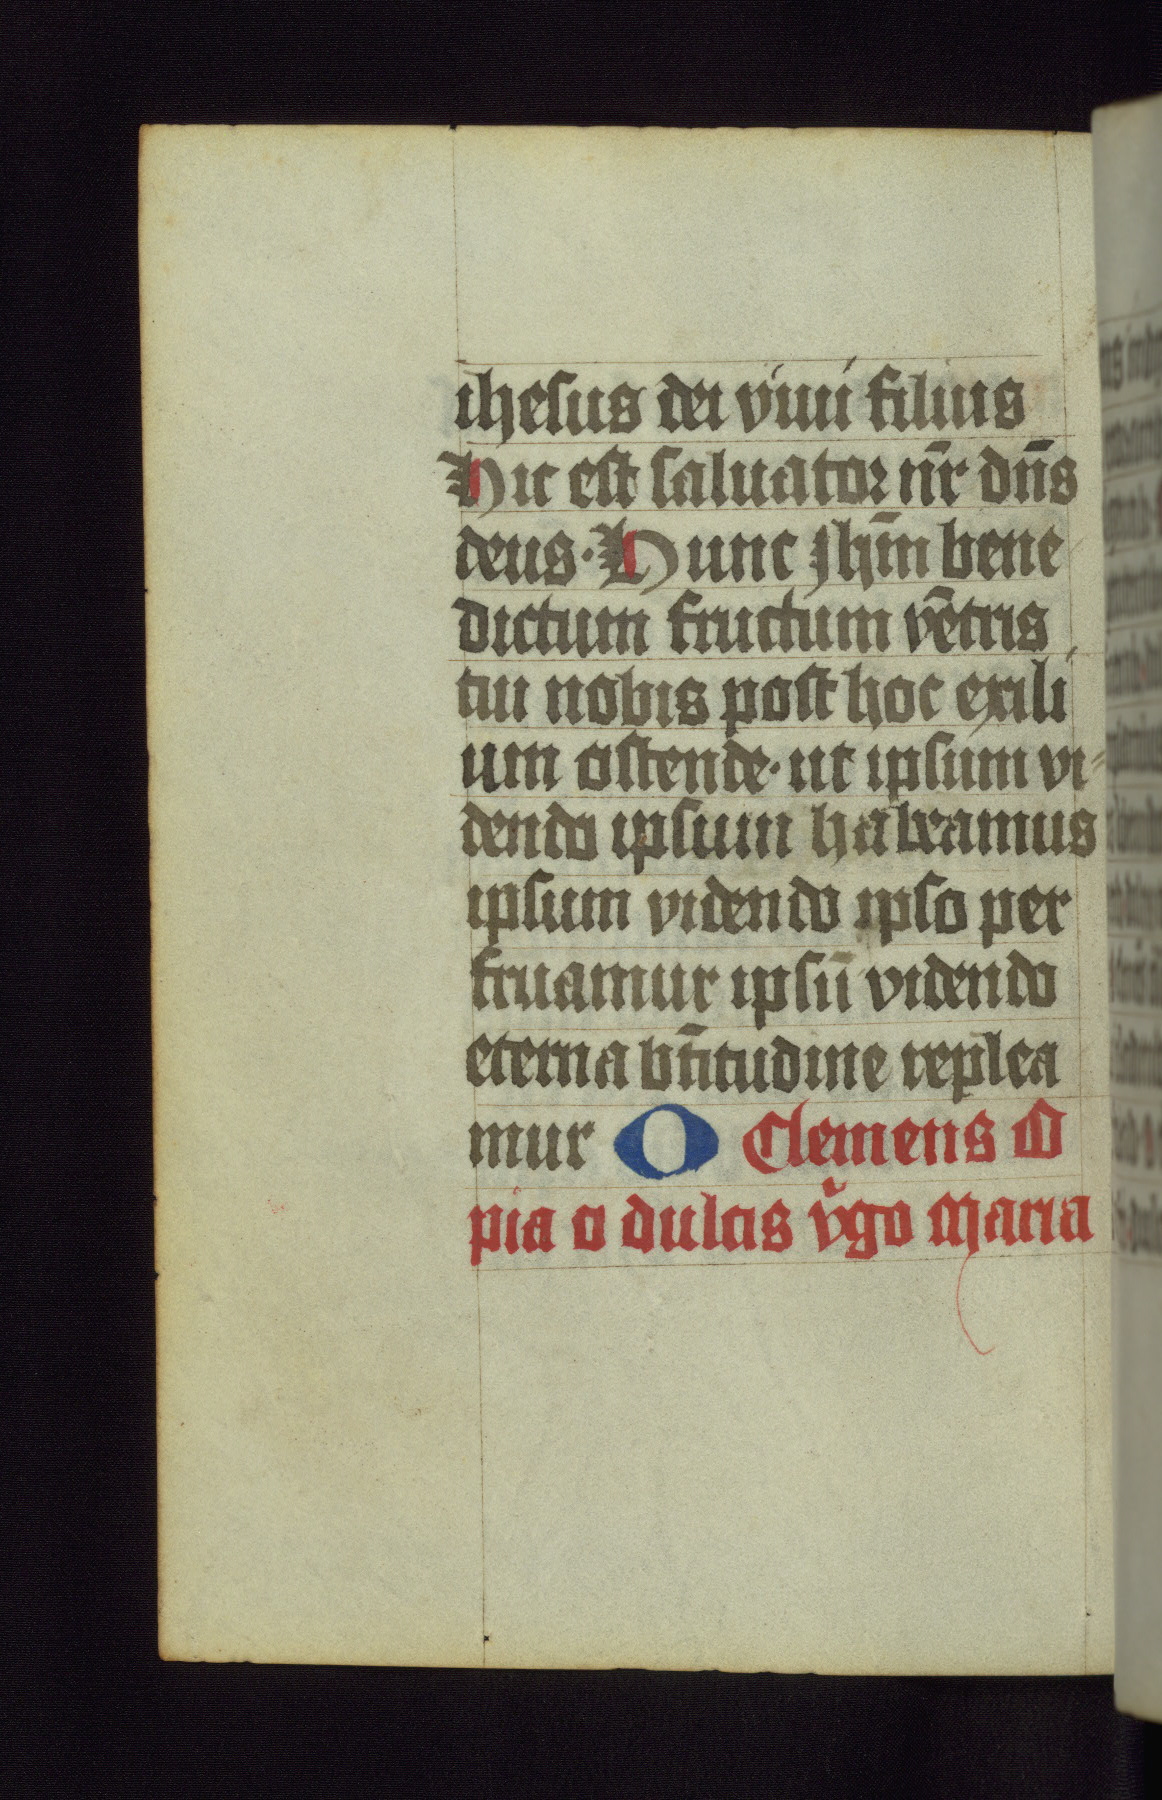 ihesus dei viui filius
Hic est saluator nr̄ dn̄s
deus· Hunc Jhm̄ bene
dictum fructum vētris
tui nobis post hoc exili
um ostende· ut ipsum vi-
dendo ipsum habeamus
ipsum videndo ipso per
fruamur ipsū videndo
eterna bt̄itudine replea
mur O Clemens O
pia o dulcis v̓go Maria